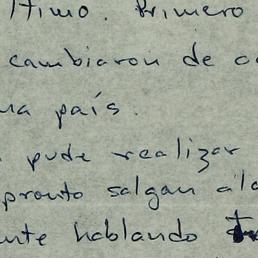 ltimo. Primero
cambiaron de c
na país.
pude realizar
pronto salgan a la
nte hablando